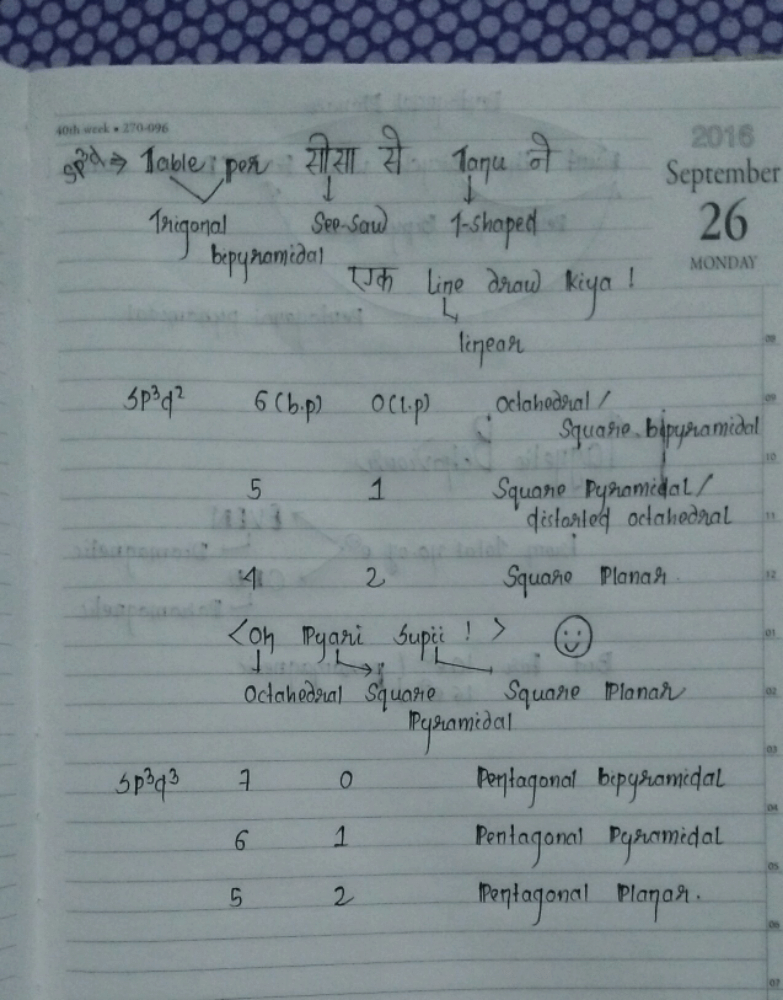 40th week • 270-096
2016
September
26
MONDAY
sp³d ⇒ Table per सीसा से Tanu ने
Trigonal bipyramidal See-saw T-shaped
एक line draw kiya !
linear
sp³d² 6 (b.p) 0 (l.p) octahedral /
Square bipyramidal
5 1 Square Pyramidal /
distorled octahedral
4 2 Square Planar
<Oh Pyari Supii ! > ☺
Octahedral Square Pyramidal Square Planar
sp³d³ 7 0 Pentagonal bipyramidal
6 1 Pentagonal Pyramidal
5 2 Pentagonal Planar.
09
09
10
11
12
01
02
03
04
05
06
07